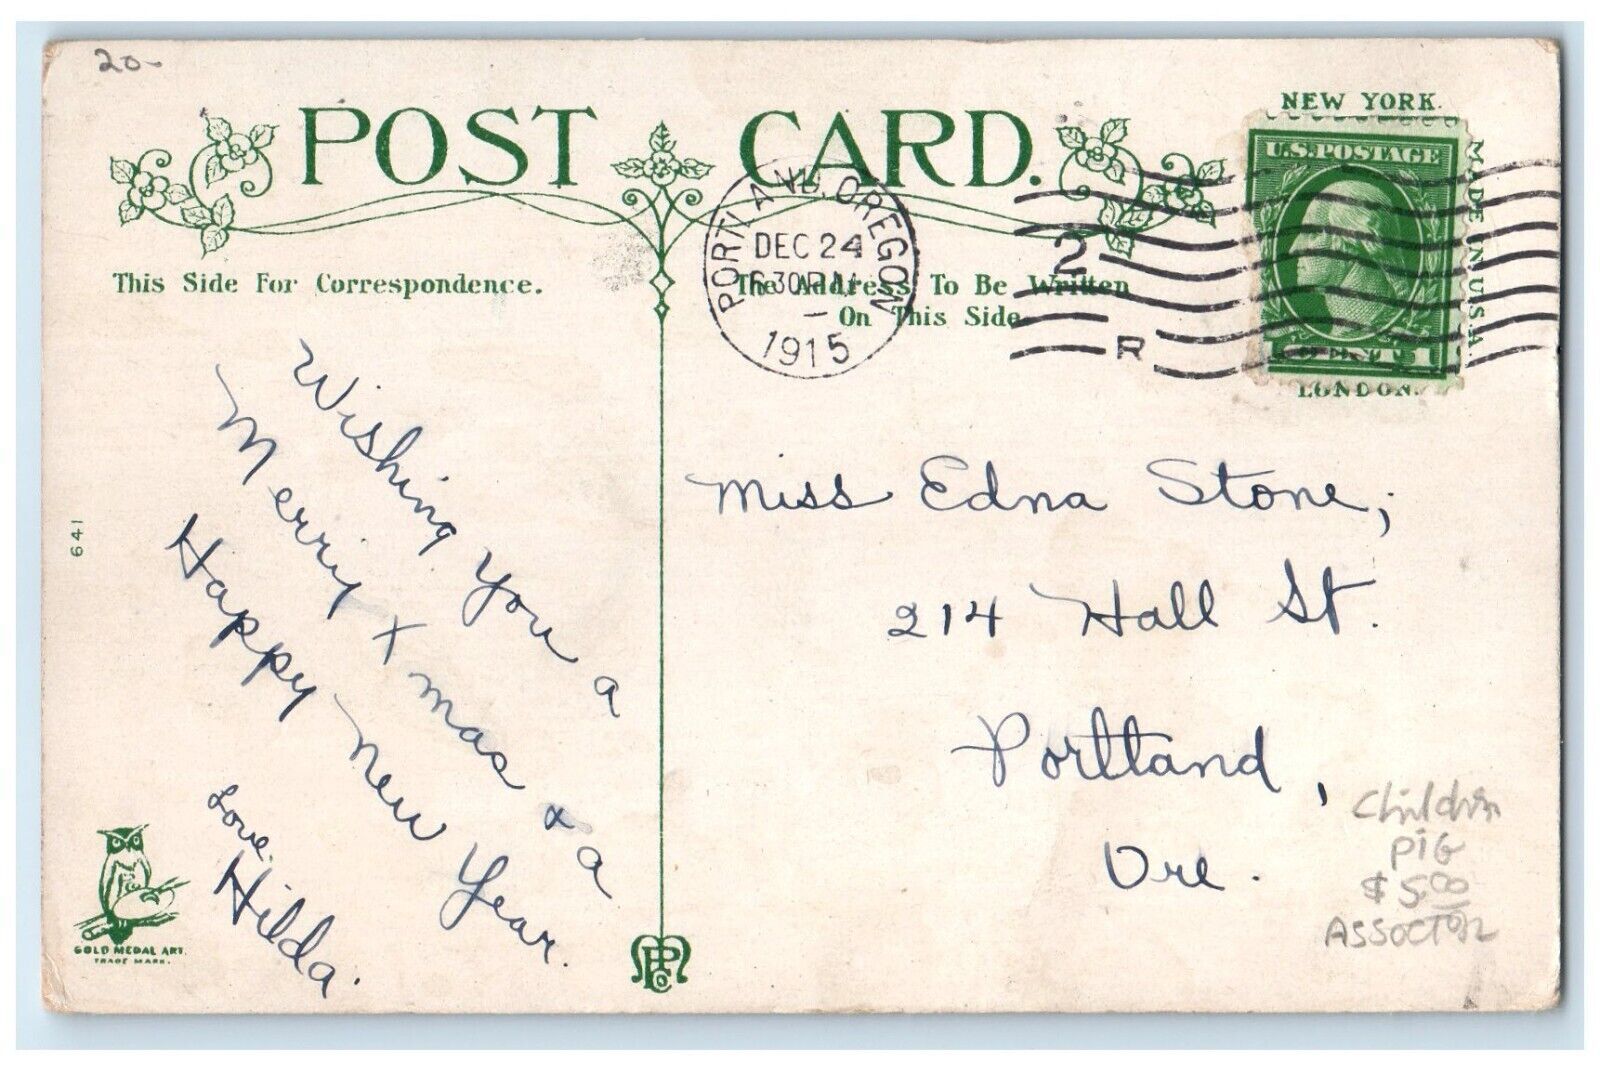 20-
POST CARD.
NEW YORK.
U.S. POSTAGE
MADE IN U.S.A.
CENT 1
LONDON.
PORTLAND, OREGON
DEC 24
6 30 PM
1915
2
R
This Side For Correspondence.
The Address To Be Written
On This Side
Wishing you a
Merry Xmas & a
Happy New Year.
Love,
Hilda.
641
GOLD MEDAL ART.
TRADE MARK.
Miss Edna Stone,
214 Hall St.
Portland,
Ore.
Children
PIG
$5.00